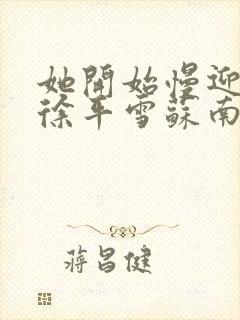 她開始慢迎
徐年雪蘇南
蔣昌健